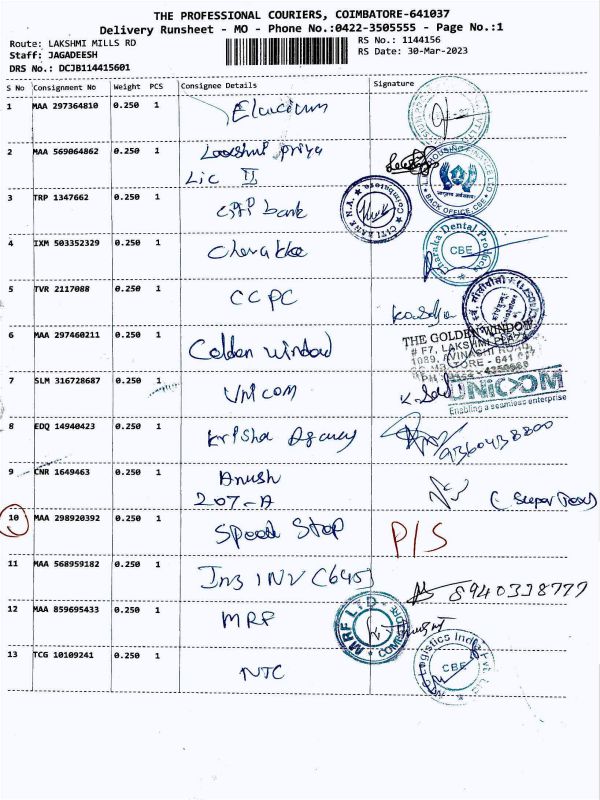 THE PROFESSIONAL COURIERS, COIMBATORE-641037
Delivery Runsheet - MO - Phone No.:0422-3505555 - Page No.:1
Route: LAKSHMI MILLS RD
RS No.: 1144156
Staff: JAGADEESH
RS Date: 30-Mar-2023
DRS No.: DCJB114415601
S No Consignment No Weight PCS Consignee Details Signature
1 MAA 297364810 0.250 1
2 MAA 569064862 0.250 1 Laxshmi priya
Lic II
BACK OFFICE, CBE
3 TRP 1347662 0.250 1 bank
CITI BANK N.A. Coimbatore
4 IXM 503352329 0.250 1
Charaka Dental Products
CBE
5 TVR 2117088 0.250 1 CCPC
6 MAA 297460211 0.250 1 Golden window
THE GOLDEN WINDOW
# F7, LAKSHMI PLAZA
1089, AVINASHI ROAD,
7 SLM 316728687 0.250 1 UNICOM
UNICOM
Enabling a seamless enterprise
8 EDQ 14940423 0.250 1 Krisha Agency
9360438800
9 CNR 1649463 0.250 1 Anush
207-A
10 MAA 298920392 0.250 1 Speed Stop P/S
11 MAA 568959182 0.250 1 INV (645)
12 MAA 859695433 0.250 1 MRF
MRF LTD
13 TCG 10109241 0.250 1 NTC
Logistics India Pvt. Ltd
CBE